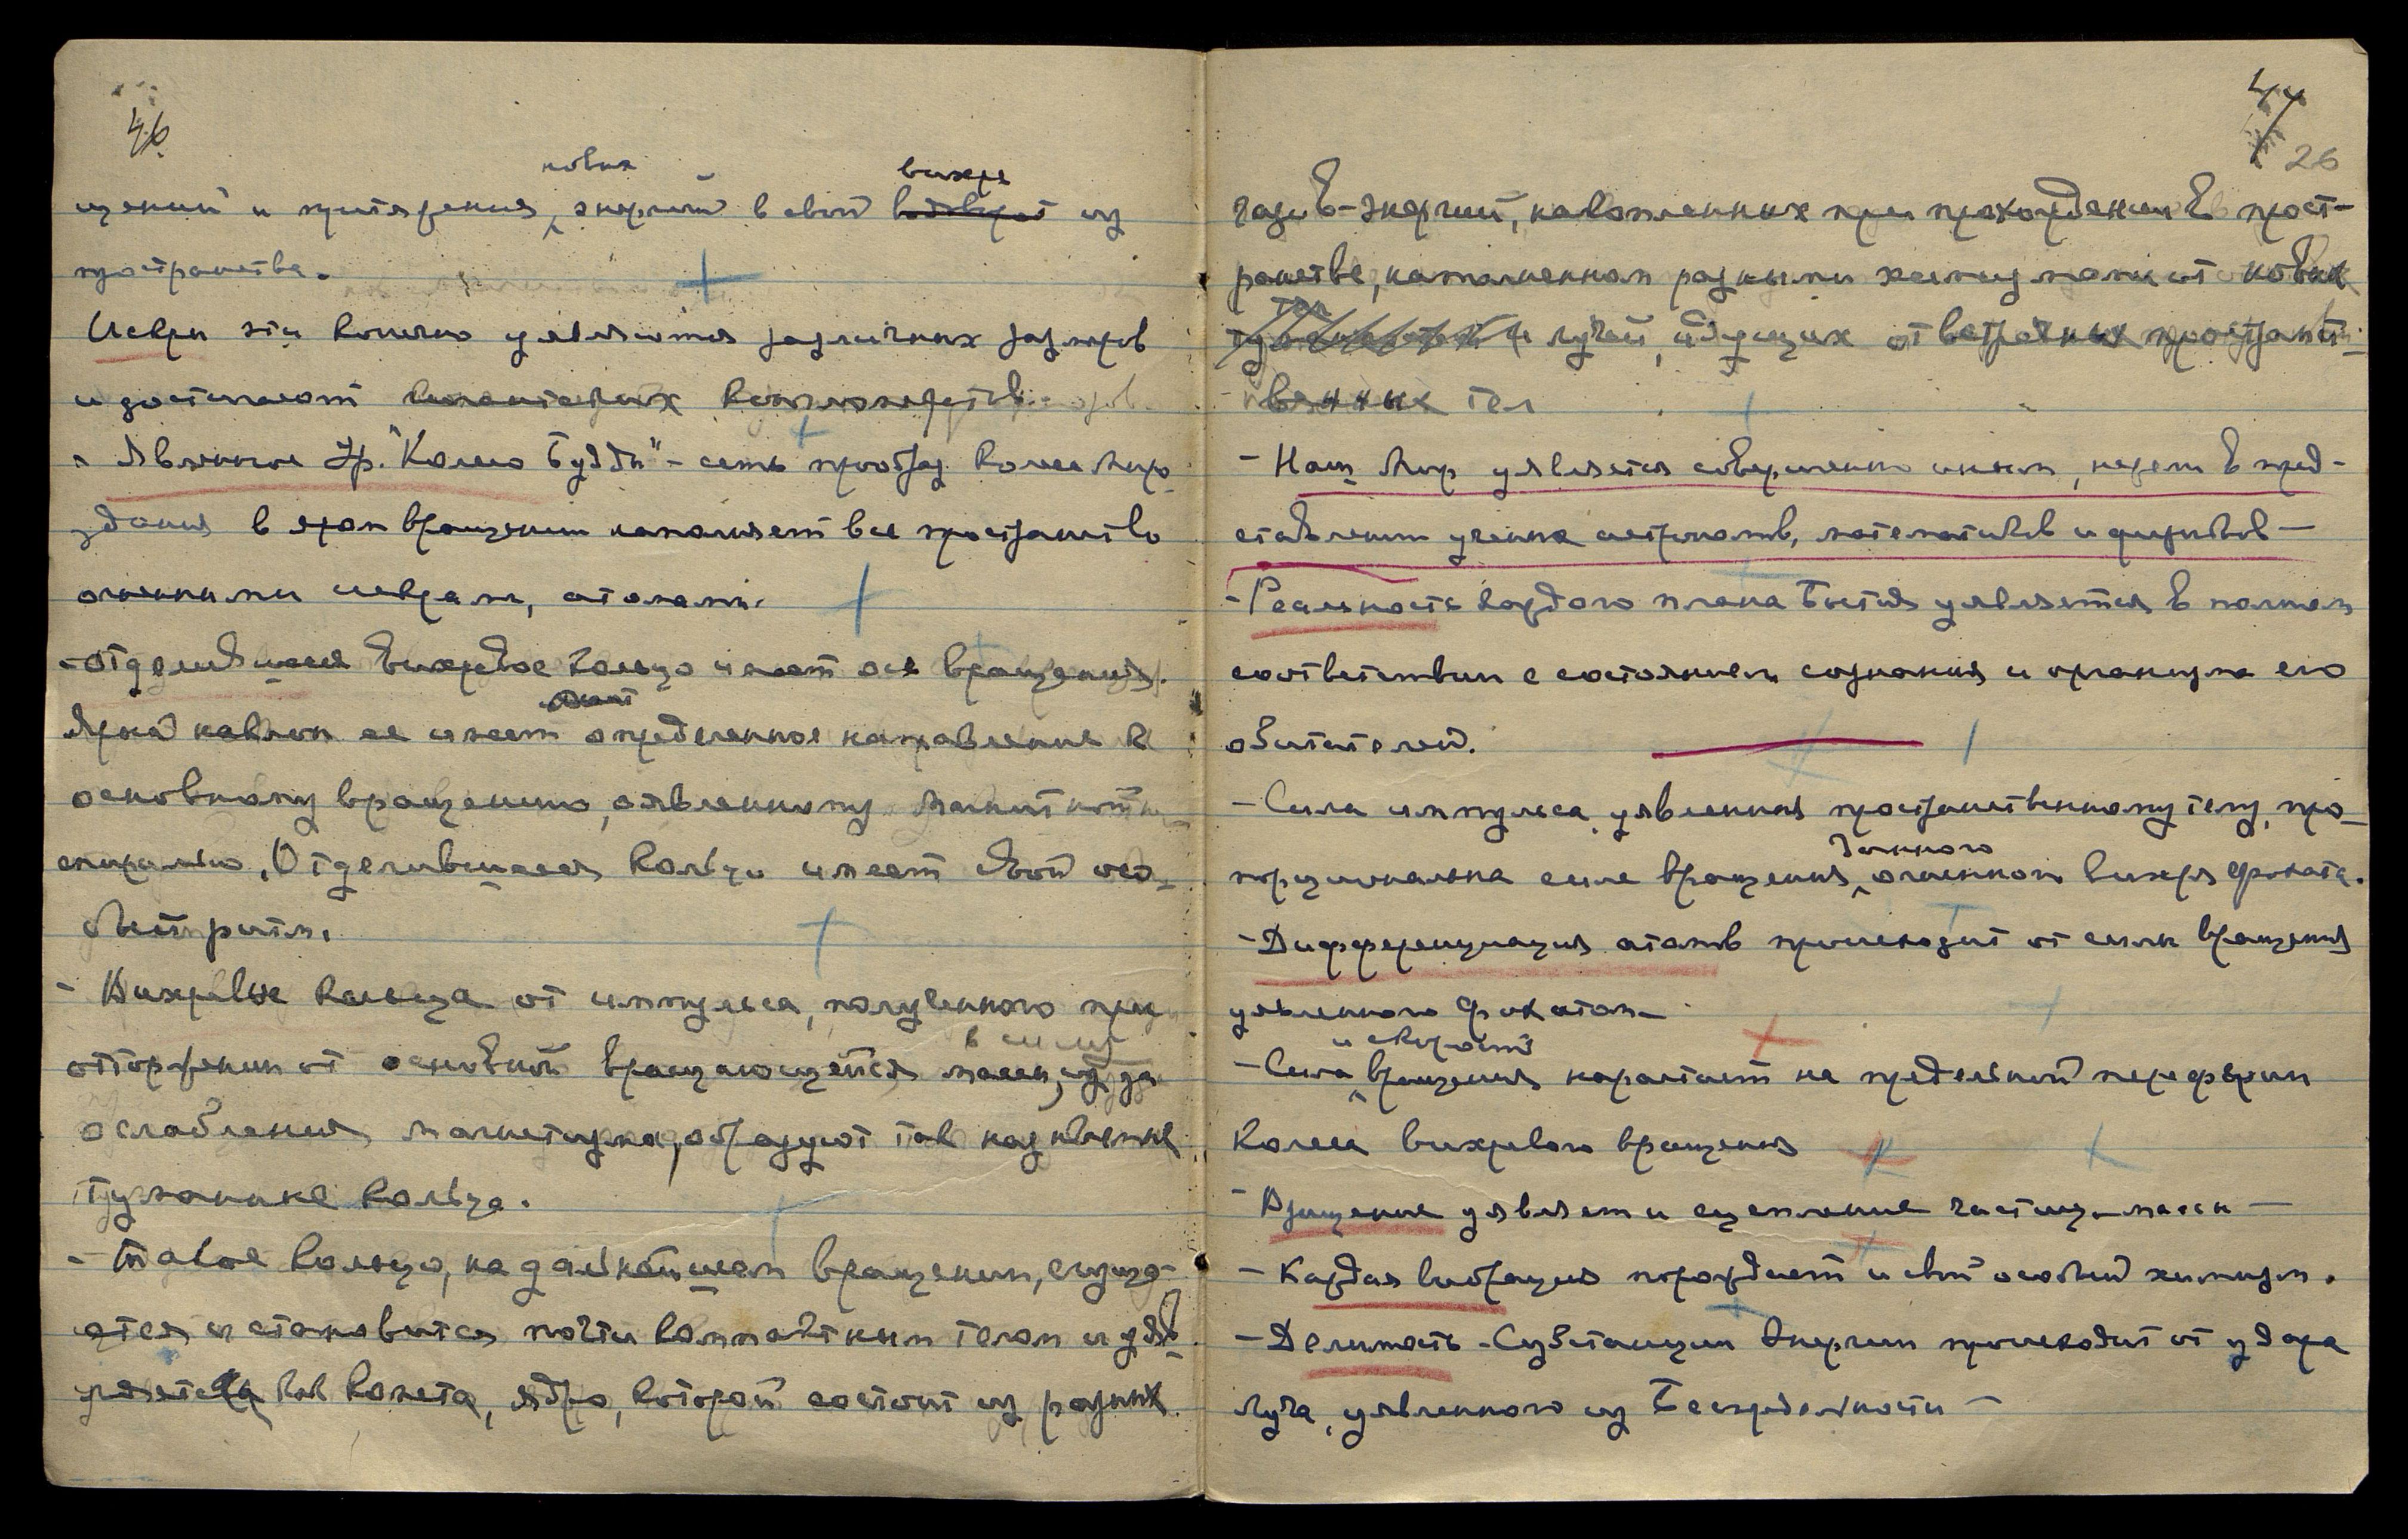 46
новых
щений и притяжения, энергий в свой водоворот из
вихрь
пространства.
Искры эти конечно уявляются различных размеров
и достигают гигантских
"Явленное Гр. "Колесо Будды" - есть прообраз колеса Миро-
здания в ярам вращении наполняет все пространство
огненными искрами, атомами.
- Отделившееся вихревое кольцо имеет ось вращения.
Яркий наклон ее имеет определенное направление к
основному вращению, оявленному магнитной
спиралью. Отделившееся кольцо имеет свой осо-
бый ритм.
- Вихревые кольца от импульса, полученного при
в силу
отторжении от основной вращающейся массы, из за
ослабления магнетизма, образуют так называемые
туманные кольца.
- Такое кольцо, на дальнейшем вращении, сгуща-
ется и становится почти компактным телом и уяв-
ляется как комета, ядро, которой состоит из разных
47
26
газов-энергий, накопленных при прохождении в прост-
ранстве, наполненном разными химизмами от новых
тел
и лучей, идущих от встречных пространст-
венных тел
- Наш Мир уявляется совершенно иным, нежели в пред-
ставлении ученых астрономов, математиков и физиков -
- Реальность каждого плана Бытия уявляется в полном
соответствии с состоянием сознания и организма его
обитателей.
- Сила импульса, уявленная пространственному телу, про-
данного
порциональна силе вращения огненного вихря Фохата.
- Дифференциация атомов происходит от силы вращения
уявленного Фохатом -
и скорость
- Сила вращения нарастает на предельной периферии
колеса вихревого вращения
- Вращение уявляет и сцепление частиц-массы -
- Каждая вибрация порождает и свой особый химизм.
- Делимость - Субстанции Энергии происходит от удара
луча, уявленного из Беспредельности -